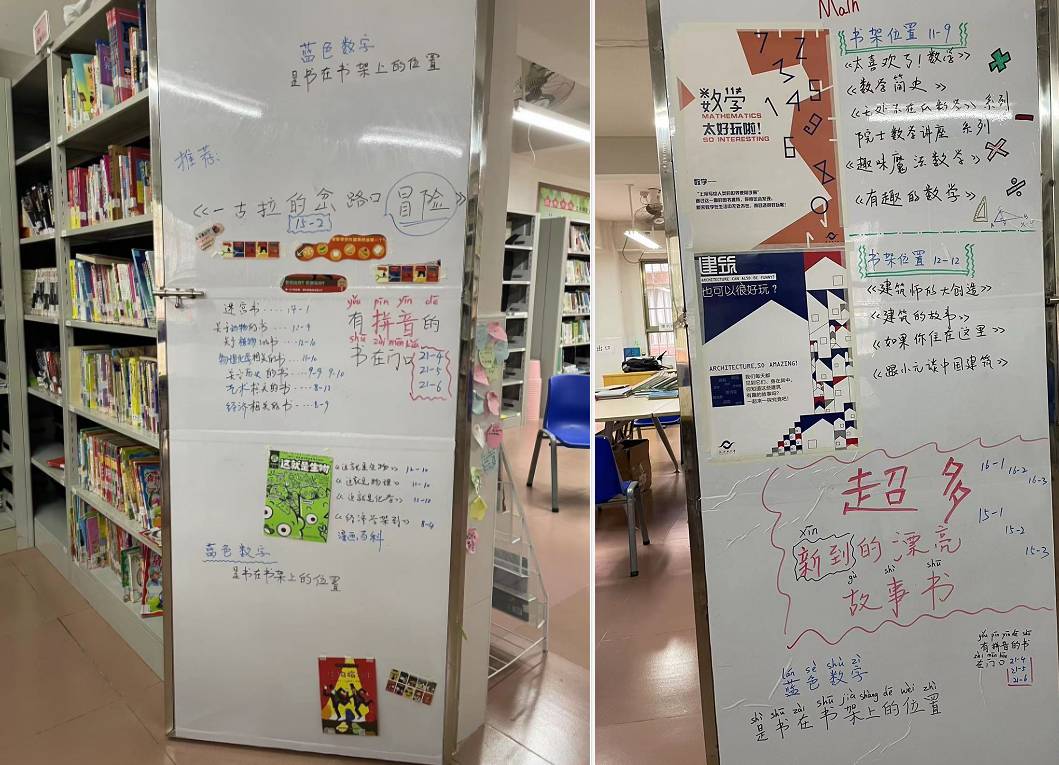 蓝色数字
是书在书架上的位置
推荐:
《一古拉的岔路口冒险》
15-2
迷宫书......14-1
关于动物的书......12-9
关于植物的书......12-10
物理化学相关的书......11-10
关于历史的书......9-9 9-10
艺术相关的书......8-12
经济相关的书......8-9
yǒu pīn yīn de
有拼音的
shū zài mén kǒu
书在门口
21-4
21-5
21-6
这就是生物
《这就是生物》 12-10
《这就是物理》 11-10
《这就是化学》 11-10
《经济学驾到》 8-9
漫画百科
蓝色数字
是书在书架上的位置
Math
数学
MATHEMATICS
太好玩啦!
SO INTERESTING
数学——
书架位置 11-9
《太喜欢了!数学》
《数学简史》
《无处不在的数学》系列
院士数学讲座 系列
《趣味魔法数学》
《有趣的数学》
建筑
ARCHITECTURE CAN ALSO BE FUNNY?
也可以很好玩?
ARCHITECTURE,SO AMAZING!
书架位置 12-12
《建筑师的大创造》
《建筑的故书》
《如果你住在这里》
《跟小元读中国建筑》
出口
超多
xīn
新到的漂亮
gù shì shū
故事书
16-1 16-2 16-3
15-1
15-2
15-3
yǒu pīn yīn de shū
有拼音的书
zài mén kǒu
在门口 21-4
21-5
21-6
lán sè shù zì
蓝色数字
shì shū zài shū jià shàng de wèi zhì
是书在书架上的位置